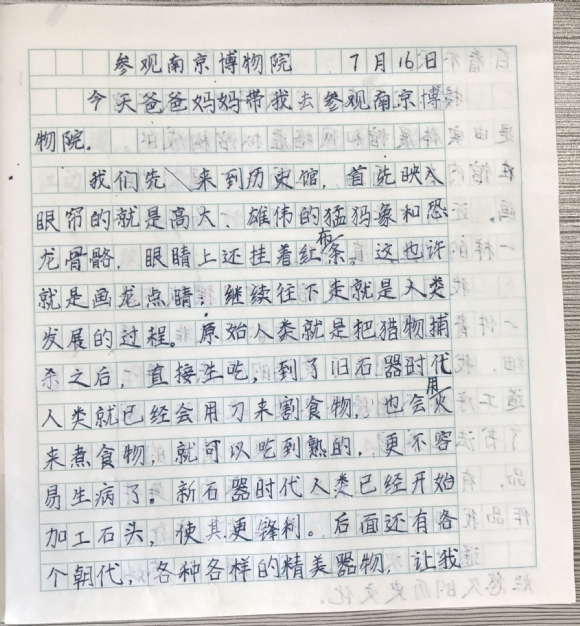 参观南京博物院 7月16日
今天爸爸妈妈带我去参观南京博
物院.
我们先来到历史馆，首先映入
眼帘的就是高大、雄伟的猛犸象和恐
龙骨骼，眼睛上还挂着红布条。这也许
就是画龙点睛；继续往下走就是人类
发展的过程。原始人类就是把猎物捕
杀之后，直接生吃，到了旧石器时代
人类就已经会用刀来割食物，也会用火
来煮食物，就可以吃到熟的，更不容
易生病了。新石器时代人类已经开始
加工石头，使其更锋利。后面还有各
个朝代，各种各样的精美器物，让我